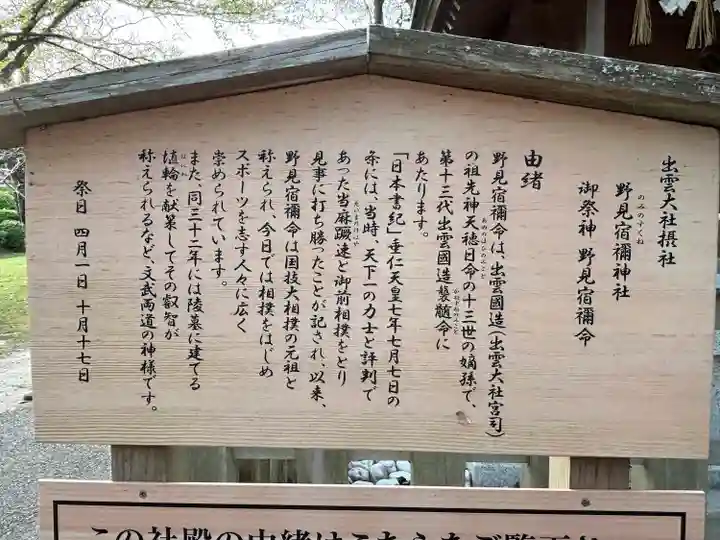 出雲大社摂社
野見宿禰神社
のみのすくね
御祭神 野見宿禰命
由緒
野見宿禰命は、出雲國造(出雲大社宮司)
の祖先神天穂日命の十三世の嫡孫で、
あめのほひのみこと
第十三代出雲國造襲髄命に
かねすねのみこと
あたります。
「日本書紀」垂仁天皇七年七月七日の
条には、当時、天下一の力士と評判で
あった当麻蹶速と御前相撲をとり
たいまのけはや
見事に打ち勝ったことが記され、以来、
野見宿禰命は国技大相撲の元祖と
称えられ、今日では相撲をはじめ
スポーツを志す人々に広く
崇められています。
また、同三十二年には陵墓に建てる
埴輪を献策してその叡智が
はにわ
称えられるなど、文武両道の神様です。
祭日 四月一日 十月十七日
この社殿の由緒はこちらもご覧下さ